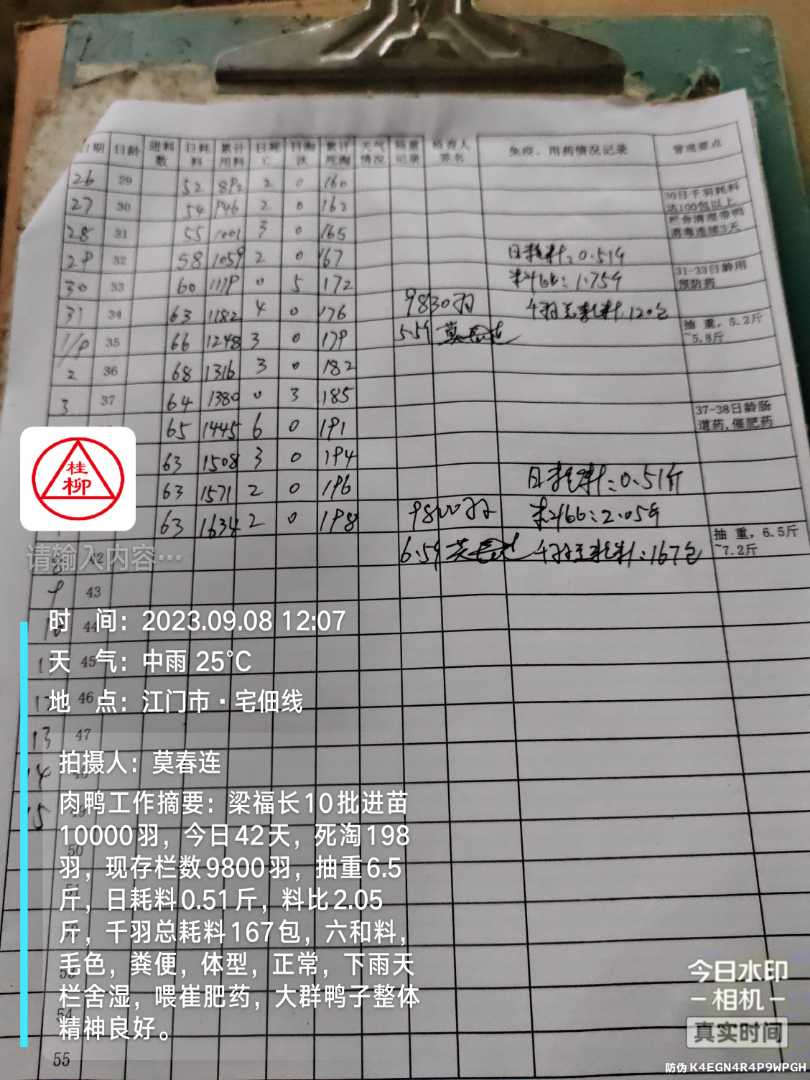 日期 日龄 进料数 日耗料 累计用料 日死亡 日淘汰 累计死淘 天气情况 称重记录 检查人签名 免疫、用药情况记录 管理要点
26 29 52 892 2 0 160
27 30 54 946 2 0 162 30日千羽耗料达100包以上，
28 31 55 1001 3 0 165 栏舍清理带鸭消毒连续3天
29 32 58 1059 2 0 167 日耗料:0.51斤
30 33 60 1119 0 5 172 料比:1.75斤 31-33日龄用预防药
31 34 63 1182 4 0 176 9830羽 千羽总耗料:120包
1/9 35 66 1248 3 0 179 5.5斤 莫春连 抽重，5.2斤~5.8斤
2 36 68 1316 3 0 182
3 37 64 1380 0 3 185
65 1445 6 0 191 37-38日龄肠道药，催肥药
63 1508 3 0 194
63 1571 2 0 196 日耗料:0.51斤
63 1634 2 0 198 9800羽 料比:2.05斤
42 6.5斤 莫春连 千羽总耗料:167包 抽重，6.5斤~7.2斤
桂柳
请输入内容…
9 43
44
45
46
13 47
14
15
50
55
时 间：2023.09.08 12:07
天 气：中雨 25℃
地 点：江门市·宅佃线
拍摄人：莫春连
肉鸭工作摘要：梁福长10批进苗
10000羽，今日42天，死淘198
羽，现存栏数9800羽，抽重6.5
斤，日耗料0.51斤，料比2.05
斤，千羽总耗料167包，六和料，
毛色，粪便，体型，正常，下雨天
栏舍湿，喂崔肥药，大群鸭子整体
精神良好。
今日水印
-相机-
真实时间
防伪 K4EGN4R4P9WPGH